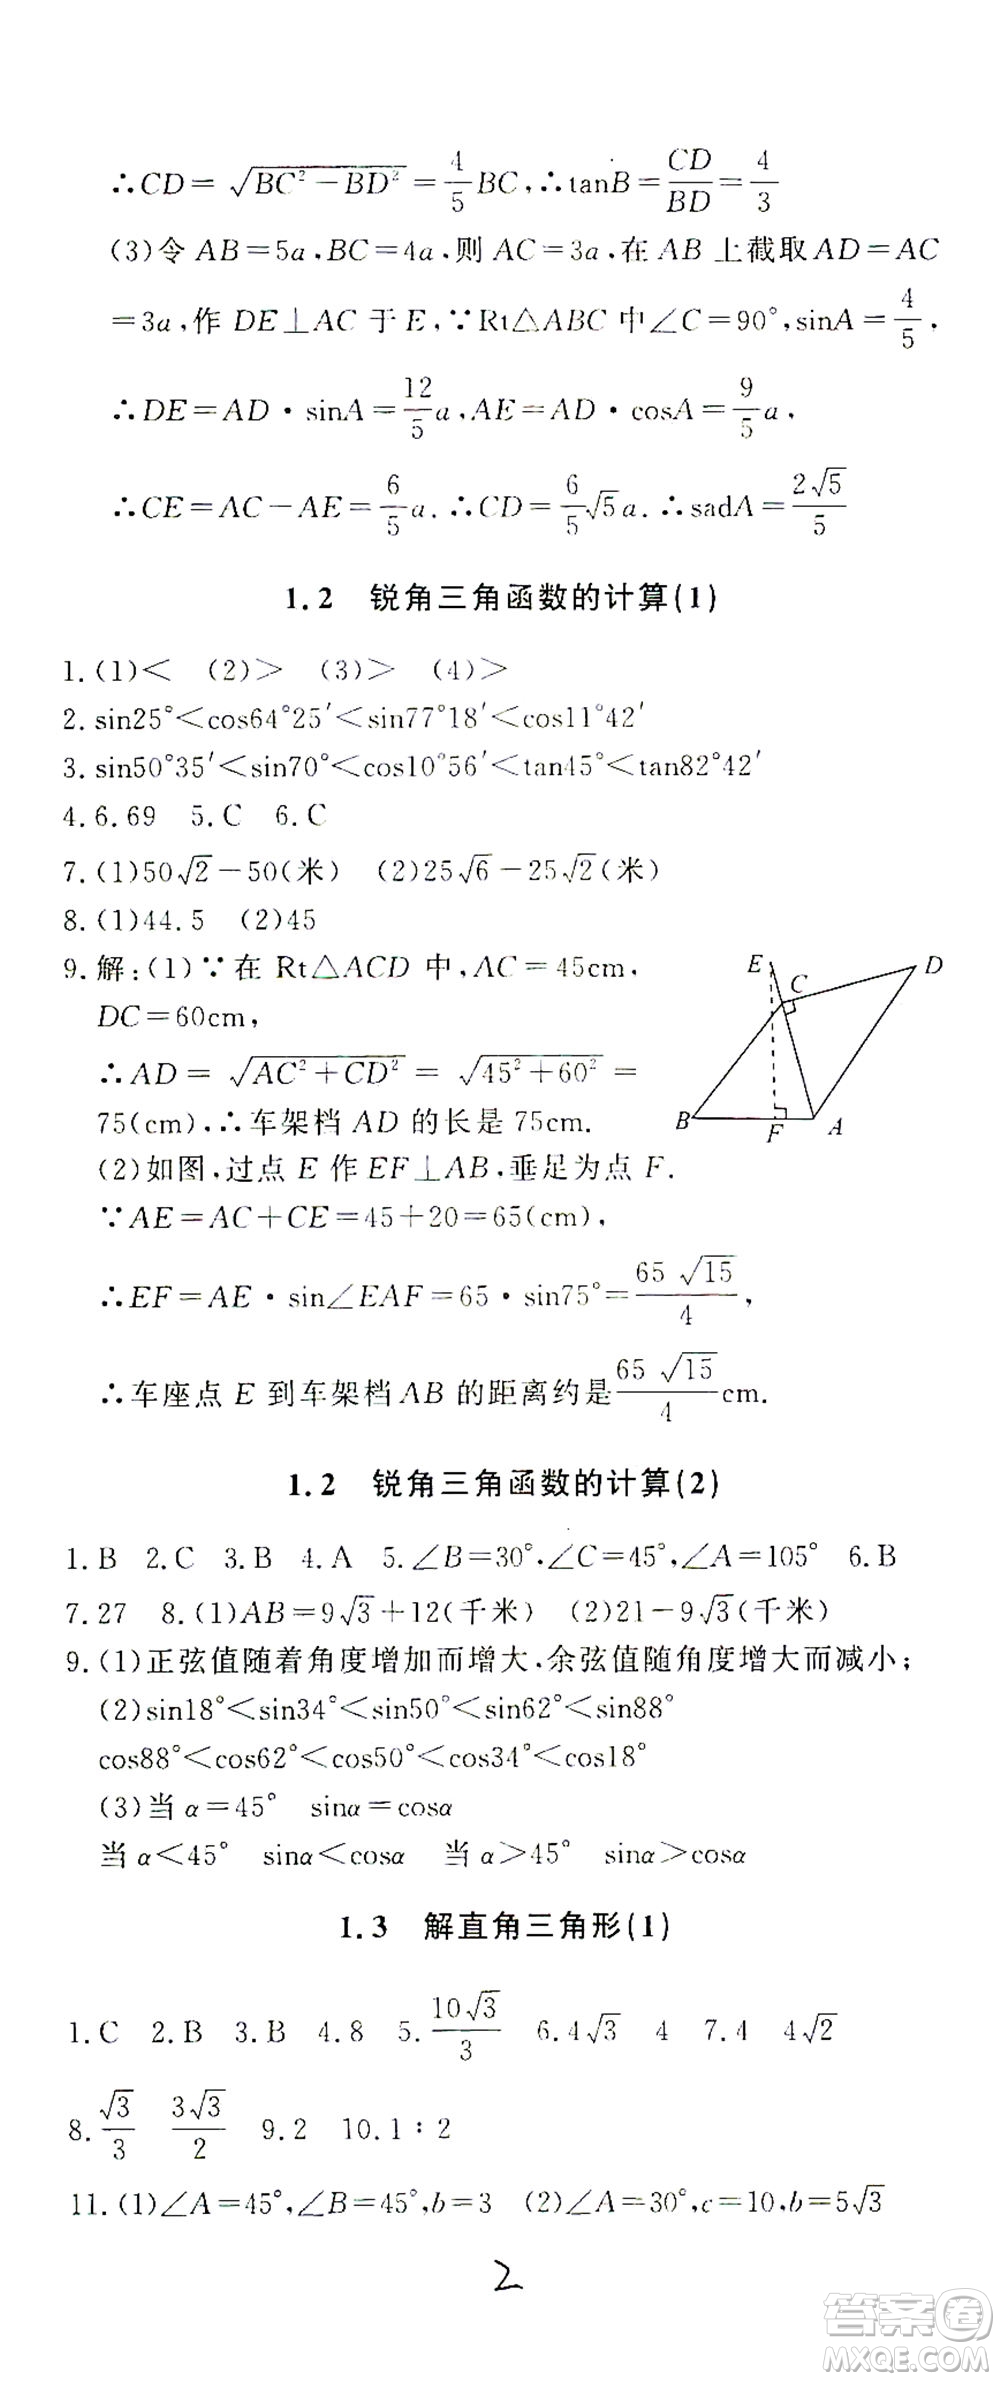 ∴CD=√(BC²-BD²)=4/5BC,∴tanB=CD/BD=4/3
(3)令 AB=5a,BC=4a,则 AC=3a,在 AB 上截取AD=AC
=3a,作 DE⊥AC 于 E,∵Rt△ABC 中∠C=90°,sinA=4/5,
∴DE=AD·sinA=12/5a,AE=AD·cosA=9/5a,
∴CE=AC-AE=6/5a.∴CD=6/5√5a.∴sadA=2√5/5
1.2 锐角三角函数的计算(1)
1.(1)< (2)> (3)> (4)>
2.sin25°<cos64°25′<sin77°18′<cos11°42′
3.sin50°35′<sin70°<cos10°56′<tan45°<tan82°42′
4.6.69 5.C 6.C
7.(1)50√2-50(米) (2)25√6-25√2(米)
8.(1)44.5 (2)45
9.解:(1)∵在 Rt△ACD 中,AC=45cm,
DC=60cm,
∴AD=√(AC²+CD²)=√(45²+60²)=
75(cm),∴车架档 AD 的长是 75cm.
(2)如图,过点 E 作 EF⊥AB,垂足为点 F.
∵AE=AC+CE=45+20=65(cm),
∴EF=AE·sin∠EAF=65·sin75°=65√15/4,
∴车座点 E 到车架档 AB 的距离约是65√15/4cm.
E
C
D
B
F
A
1.2 锐角三角函数的计算(2)
1.B 2.C 3.B 4.A 5.∠B=30°,∠C=45°,∠A=105° 6.B
7.27 8.(1)AB=9√3+12(千米) (2)21-9√3(千米)
9.(1)正弦值随着角度增加而增大,余弦值随角度增大而减小;
(2)sin18°<sin34°<sin50°<sin62°<sin88°
cos88°<cos62°<cos50°<cos34°<cos18°
(3)当 α=45° sinα=cosα
当 α<45° sinα<cosα 当 α>45° sinα>cosα
1.3 解直角三角形(1)
1.C 2.B 3.B 4.8 5.10√3/3 6.4√3 4 7.4 4√2
8.√3/3 3√3/2 9.2 10.1∶2
11.(1)∠A=45°,∠B=45°,b=3 (2)∠A=30°,c=10,b=5√3
2
答案卷
MXQE.COM